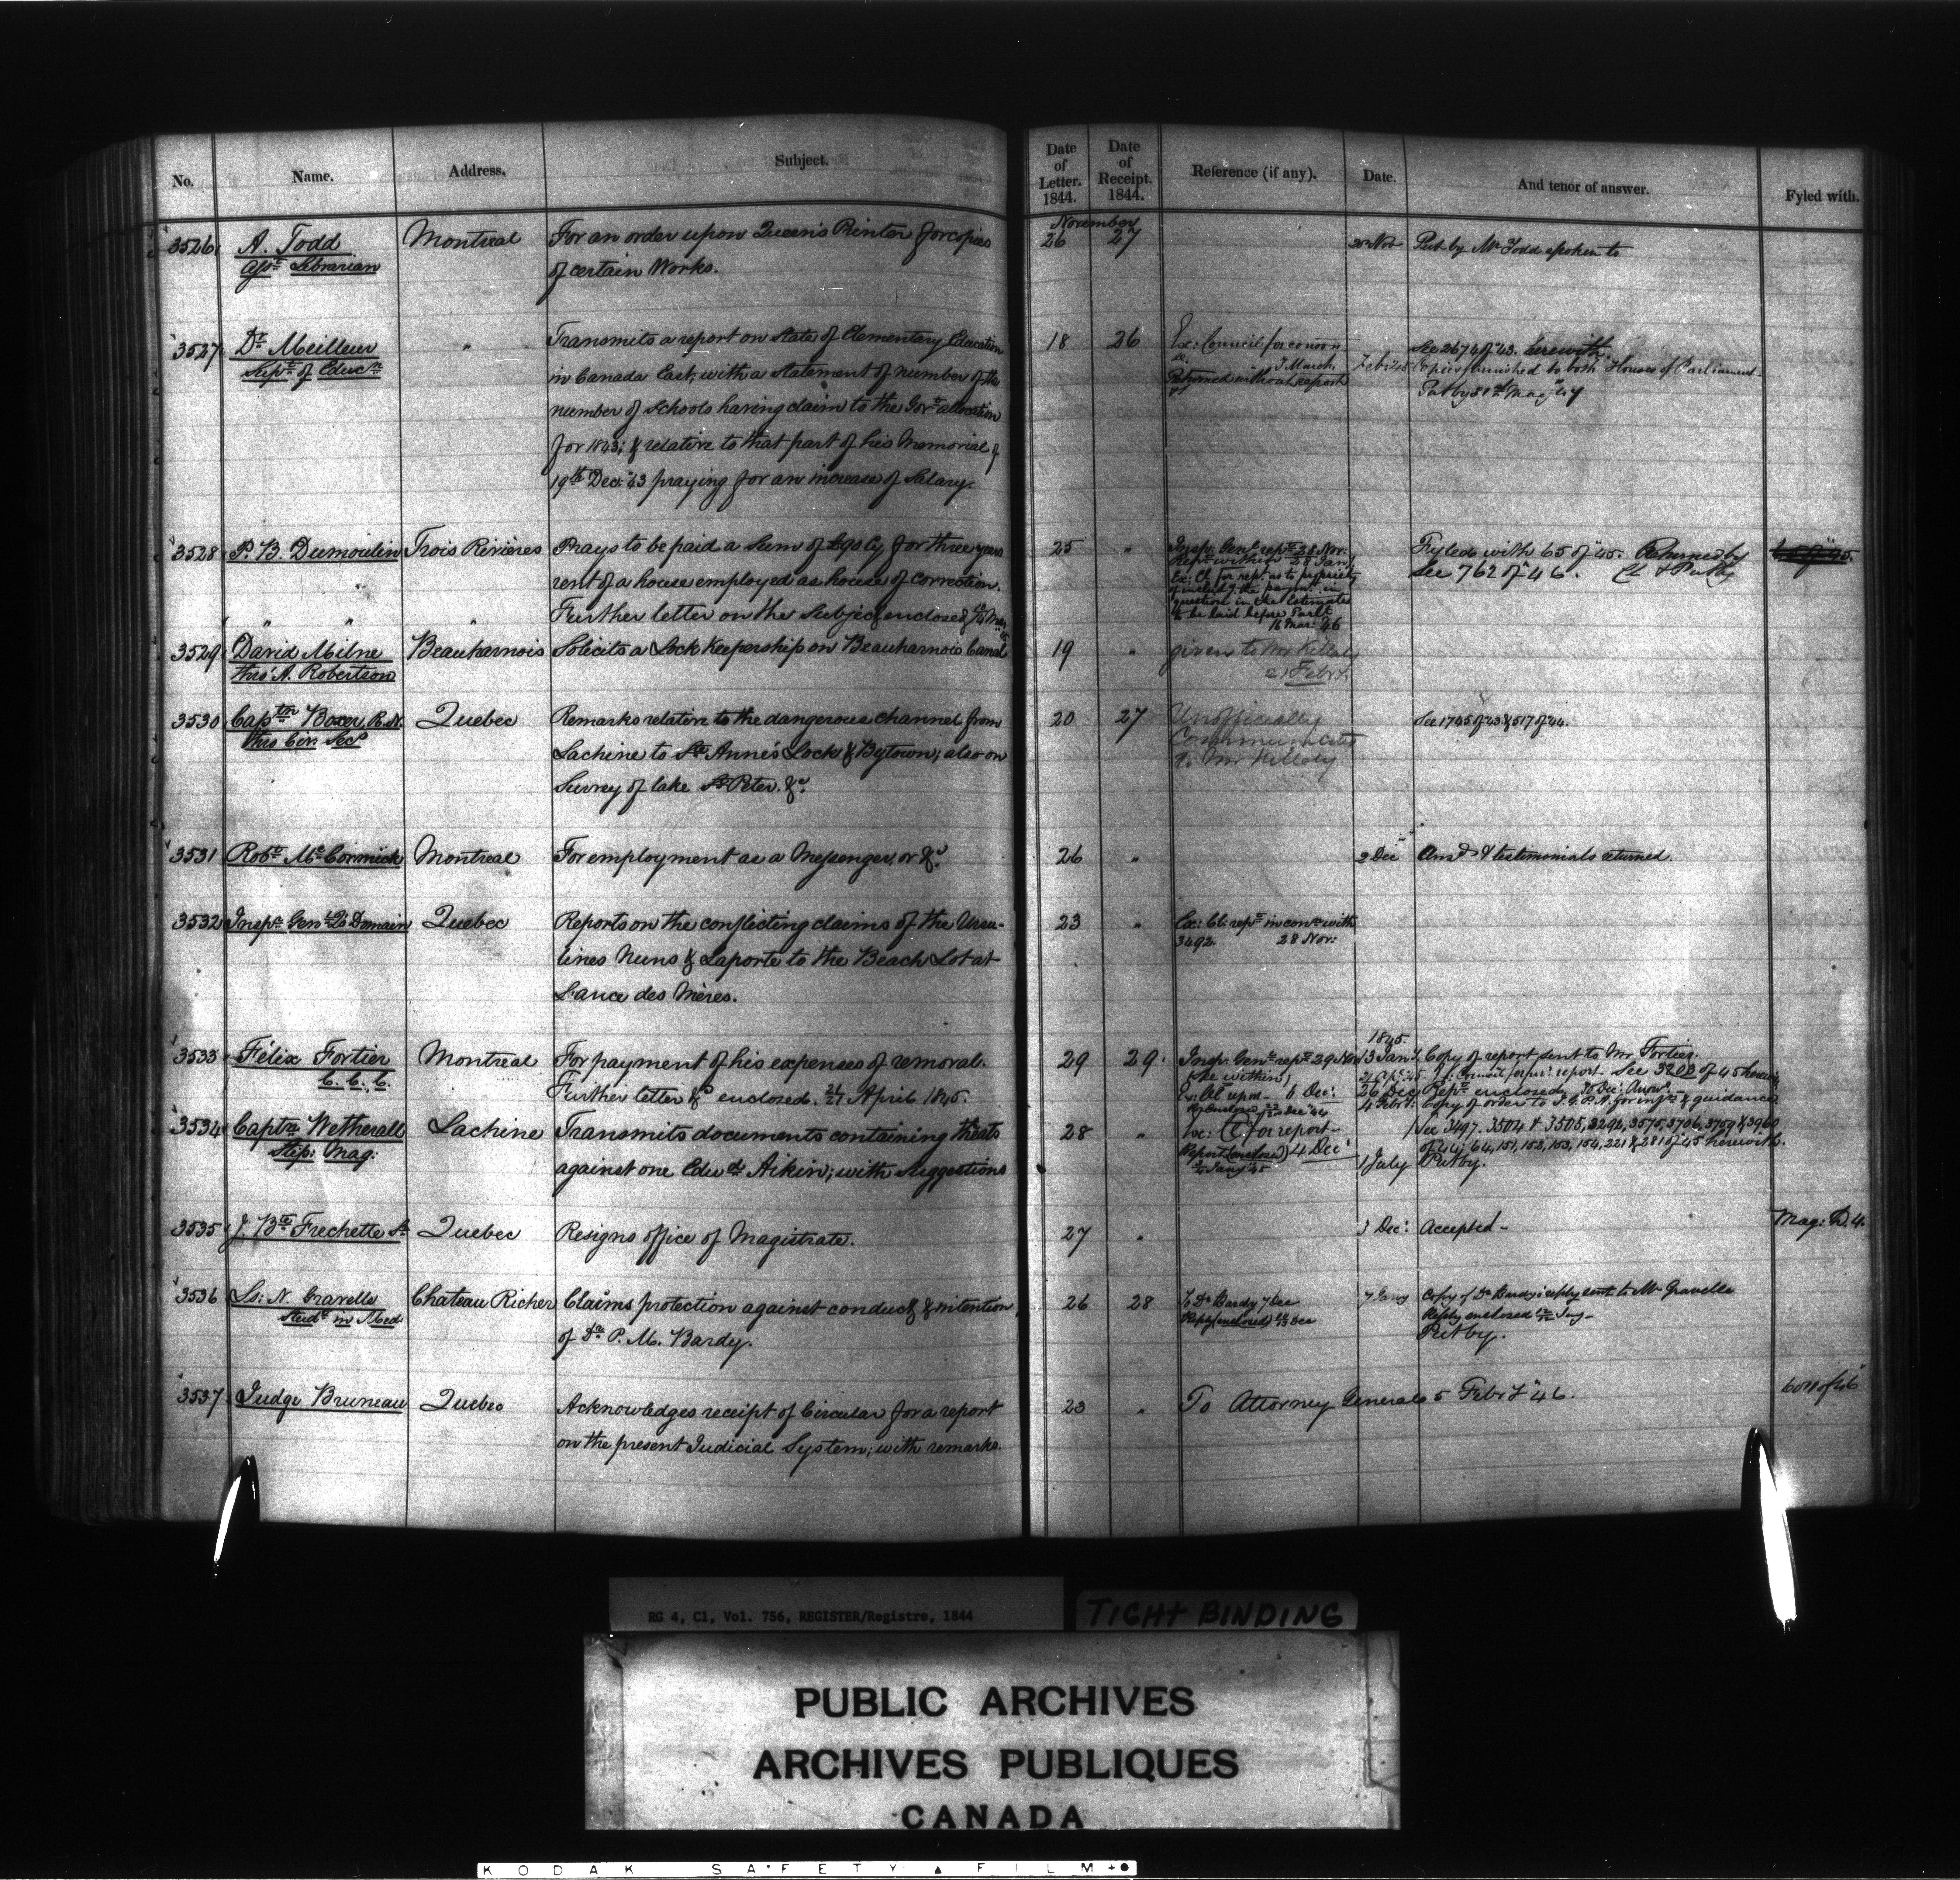 No. Name. Address. Subject.
Date of Letter. 1844. Date of Receipt. 1844. Reference (if any). Date. And tenor of answer. Fyled with.
November
3526 A. Todd Montreal For an order upon Queen's Printer for copies 26 27 Put by Mr Todd spoken to
Asst Librarian of certain Works.
3527 Dr Meilleur " Transmits a report on State of Elementary Education 18 26 Ex: Council for
Supt of Educn in Canada East, with a statement of number of the
number of schools having claim to the Govt allocation
for 1843; & relative to that part of his Memorial of
19th Dec: 43 praying for an increase of Salary.
7 March
Returned without report
See 2674 of 43. herewith
Copies furnished to both Houses of Parliament
3528 P. B. Dumoulin Trois Rivières Prays to be paid a Sum of £90 Cy for three years 25 "
rent of a house employed as house of correction.
Further letter on the Subject enclosed
Insp: Genl rept 28 Nov.
Rept within 28 Jany
Ex: Cl for rept as to propriety
of includg the paymt in
question in the Estimates
to be laid before Parlt
16 Mar: 46
Fyled with 65 of 45. Returned by
See 762 of 46. Cl & Put by
65 of 45.
3529 David Milne Beauharnois Solicits a Lock Keepership on Beauharnois Canal 19 " given to Mr Killaly
thro' A. Robertson Febry
3530 Captn Boxer, R.N. Quebec Remarks relative to the dangerous channel from 20 27 Unofficially See 1745 of 43 & 517 of 44.
thro Civ. Secy Lachine to St Anne's Lock & Bytown; also on Communicated
Survey of lake St Peter. &c. to Mr Killaly
3531 Robt McCormick Montreal For employment as a Messenger, or &c. 26 " 2 Dec Ansd & testimonials returned.
3532 Inspr Genl Q's Domain Quebec Reports on the conflicting claims of the Ursu- 23 " Ex: Cl: rept in conn with
lines Nuns & Laporte to the Beach Lot at 3492. 28 Nov:
L'ance des Mères.
3533 Félix Fortier Montreal For payment of his expenses of removal. 29 29. Insp: Genl rept 29 Nov
C. C. C. Further letter &c enclosed. 21 April 1845.
(See within)
Ex: Cl upon 6 Dec:
1845.
13 Jany. Copy of report sent to Mr Fortier.
See 3200 of 45
26 Dec Rept enclosed
4 Febry. Copy of order to I.G.P.A. for infn & guidance
3534 Captn Wetherall Lachine Transmits documents containing threats 28 " Ex: Cl for report
Stip: Mag: against one Edwd Aikin; with Suggestions Report (enclosed) 4 Dec
See 3497. 3504 & 3505, 3292, 3575, 3706, 3759 & 3960
of 44; 64, 151, 152, 153, 154, 221 & 281 of 45 herewith.
1 July Put by.
3535 J. Bte Frechette Sr Quebec Resigns office of Magistrate. 27 " 3 Dec: Accepted - Mag: D. 4.
3536 Ls: N. Gravelle Chateau Richer Claims protection against conduct & intention 26 28 To Dr Bardy 7 Dec 7 Jany Copy of Dr Bardy's reply sent to Mr Gravelle
Studt in Med: of Dr P. M. Bardy. Reply (enclosed) Dec Reply enclosed Jany -
Put by.
3537 Judge Bruneau Quebec Acknowledges receipt of Circular for a report 23 " To Attorney General 5 Febry 46.
on the present Judicial System; with remarks.
RG 4, C1, Vol. 756, REGISTER/Registre, 1844
TIGHT BINDING
PUBLIC ARCHIVES
ARCHIVES PUBLIQUES
CANADA
KODAK SAFETY FILM